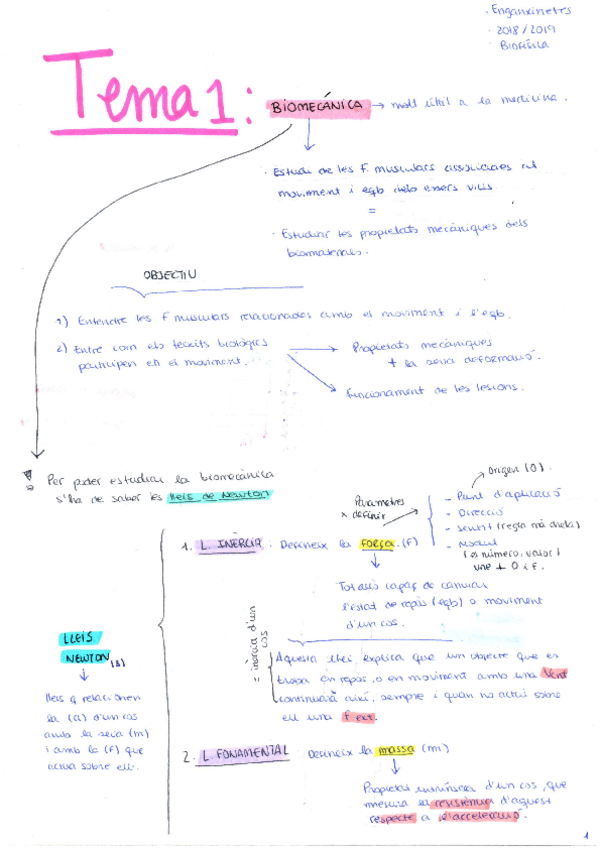 Enganxinetes
2018/2019
Biofísica
Tema 1:
BIOMECÀNICA → molt útil a la medicina.
· Estudi de les F. musculars associades al
moviment i eqb dels essers vius
=
· Estudiar les propietats mecàniques dels
biomaterials.
OBJECTIU
1) Entendre les F musculars relacionades amb el moviment i l'eqb.
2) Entre com els teixits biològics
participen en el moviment.
→ Propietats mecàniques
+ la seva deformació.
→ funcionament de les lesions.
Per poder estudiar la biomecànica
s'ha de saber les lleis de Newton
LLEIS
NEWTON (3)
lleis q relacionen
la (a) d'un cos
amb la seva (m)
i amb la (F) que
actua sobre ell.
1. L. INÈRCIA · Defineix la força. (F)
Paràmetres
x definir
- Punt d'aplicació
→ origen (0).
- Direcció
- Sentit (regla mà dreta)
- Mòdul
(el número, valor)
Tot allò capaç de canviar
l'estat de repòs (eqb) o moviment
d'un cos.
= inèrcia d'un
cos
Aquesta llei explica que un objecte que es
troba en repòs, o en moviment amb una
continuarà així, sempre i quan no actuï sobre
ell una F ext.
2. L. FONAMENTAL Defineix la massa (m)
Propietat intrínseca d'un cos, que
mesura la resistència d'aquest
respecte a l'acceleració.
1